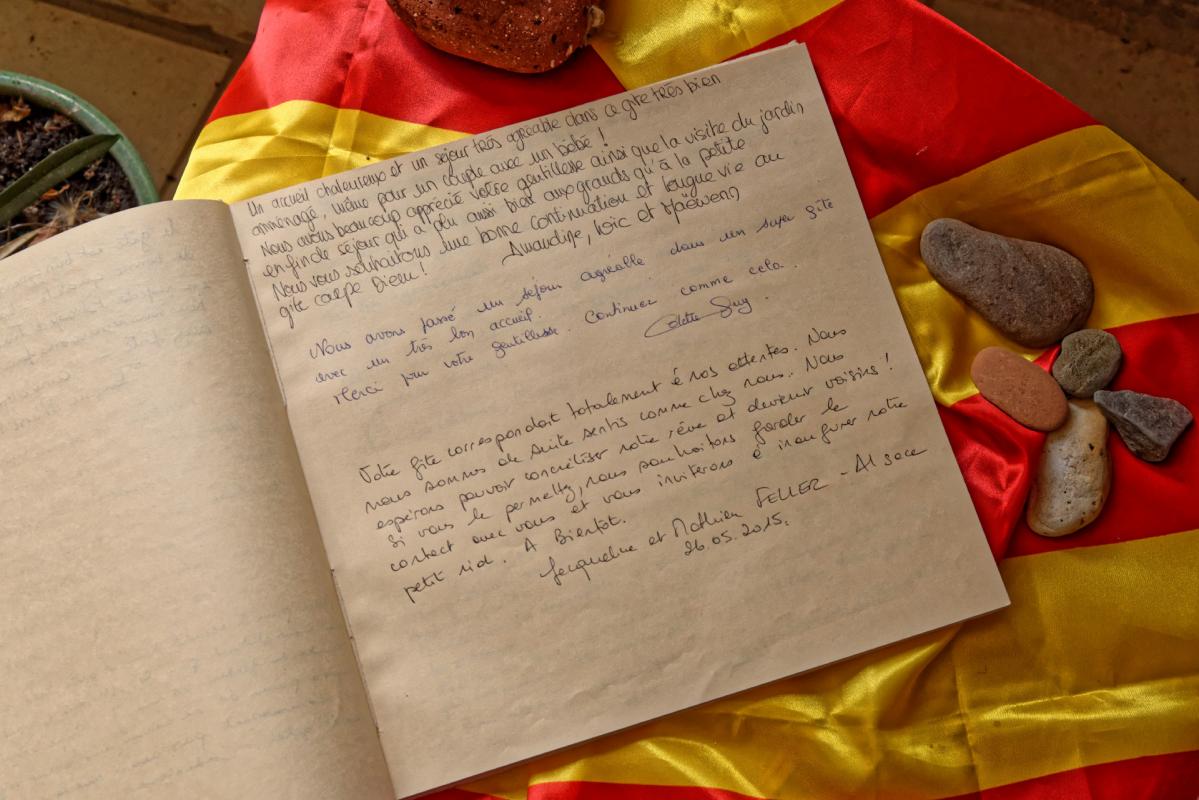 Un accueil chaleureux et un séjour très agréable dans ce gîte très bien
aménagé, même pour un couple avec un bébé !
Nous avons beaucoup apprécié votre gentillesse ainsi que la visite du jardin
en fin de séjour qui a plu aussi bien aux grands qu'à la petite
Nous vous souhaitons une bonne continuation et longue vie au
gîte coupe Dieu !
Amandine, Loïc et Maëwenn
Nous avons passé un séjour agréable dans un super gîte
avec un très bon accueil.
Merci pour votre gentillesse. Continuez comme cela.
Colette Guy.
Votre gîte correspondait totalement à nos attentes. Nous
nous sommes de suite sentis comme chez nous. Nous
espérons pouvoir concrétiser notre rêve et devenir voisins !
Si vous le permettez, nous souhaitons garder le
contact avec vous et vous inviterons à inaugurer notre
petit nid. A Bientôt.
Jacqueline et Mathieu FELLER - Alsace
26.05.2015.